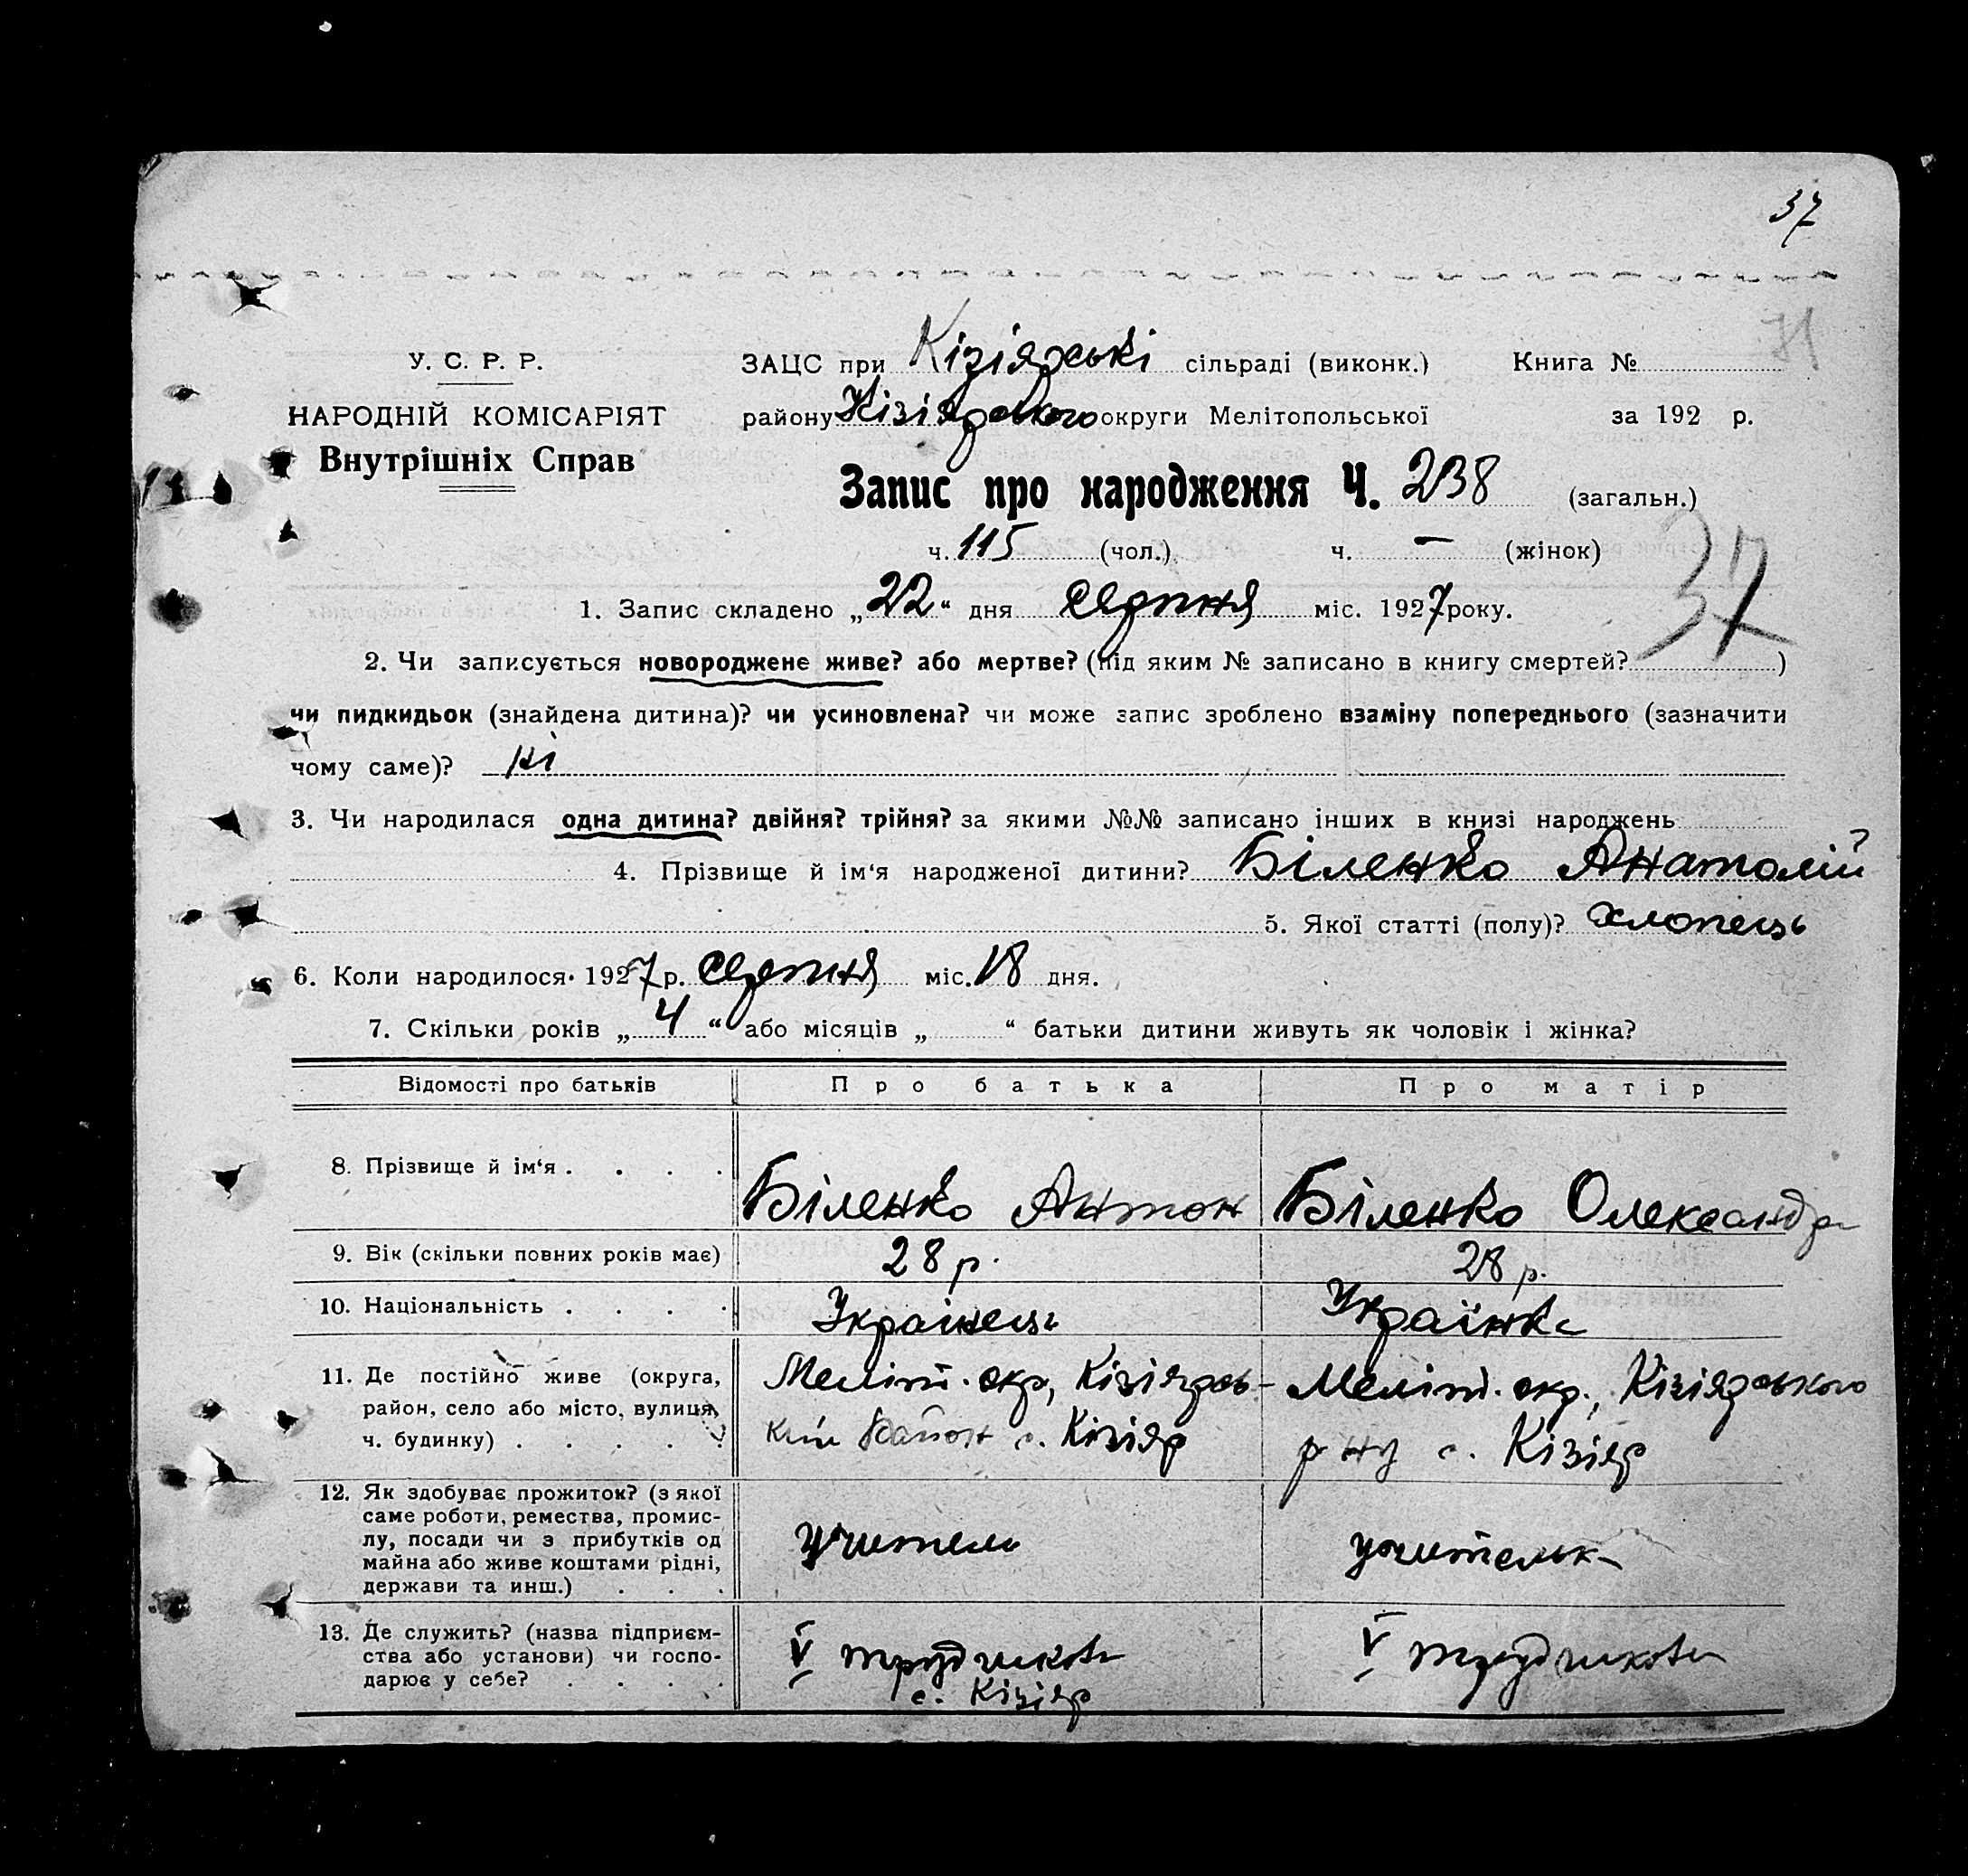 37
71
У. С. Р. Р. ЗАЦС при Кізіярські сільраді (виконк.) Книга №
НАРОДНІЙ КОМІСАРІЯТ району Кізіярського округи Мелітопольської за 192 р.
Внутрішніх Справ
Запис про народження Ч. 238 (загальн.)
ч. 115 (чол.) ч. — (жінок)
37
1. Запис складено „22“ дня серпня міс. 1927 року.
2. Чи записується новороджене живе? або мертве? (під яким № записано в книгу смертей? )
чи пидкидьок (знайдена дитина)? чи усиновлена? чи може запис зроблено взаміну попереднього (зазначити
чому саме)? ні
3. Чи народилася одна дитина? двійня? трійня? за якими №№ записано інших в книзі народжень
4. Прізвище й ім‘я народженої дитини? Біленко Анатолій
5. Якої статті (полу)? хлопець
6. Коли народилося· 1927 р. серпня міс. 18 дня.
7. Скільки років „ 4 “ або місяців „ “ батьки дитини живуть як чоловік і жінка?
Відомості про батьків Про батька Про матір
8. Прізвище й ім‘я . . . . Біленко Антон Біленко Олександра
9. Вік (скільки повних років має) 28 р. 28 р.
10. Національність . . . . Українець Українка
11. Де постійно живе (округа, Меліт. окр, Кізіярсь- Меліт. окр., Кізіярського
район, село або місто, вулиця, кий район с. Кізіяр р-ну с. Кізіяр
ч. будинку) . . . . .
12. Як здобуває прожиток? (з якої
саме роботи, ремества, промис-
лу, посади чи з прибутків од учитель учителька
майна або живе коштами рідні,
держави та инш.) . . .
13. Де служить? (назва підприєм- V трудшкола V трудшкола
ства або установи) чи госпо- с. Кізіяр
дарює у себе? . . . .